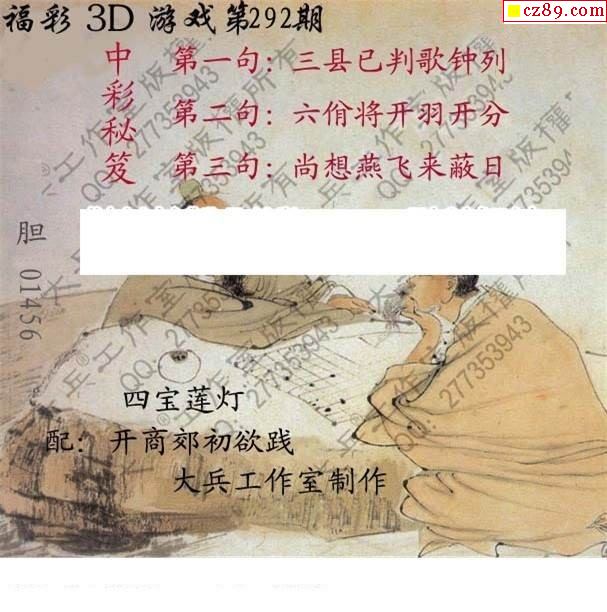 cz89.com
福彩 3D 游戏 第292期
中彩秘笈
第一句：三县已判歌钟列
第二句：六佾将开羽开分
第三句：尚想燕飞来蔽日
胆 01456
四宝莲灯
配：开商郊初欲践
大兵工作室制作
大兵®工作室版权所有
QQ：277353943